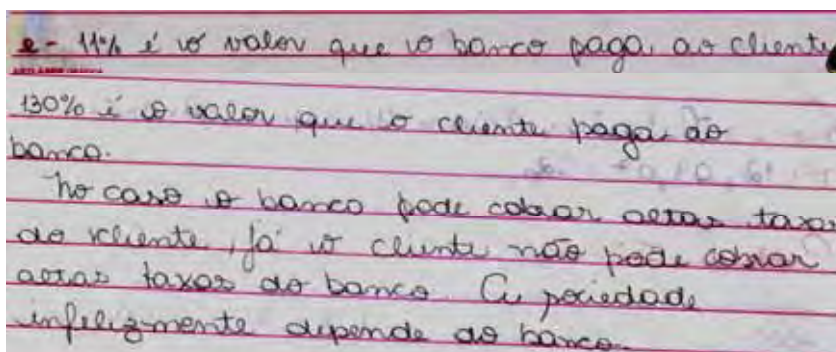 e- 11% é o valor que o banco paga ao cliente
130% é o valor que o cliente paga ao
banco.
No caso o banco pode cobrar altas taxas
do cliente, já o cliente não pode cobrar
altas taxas do banco. A sociedade
infelizmente depende do banco.